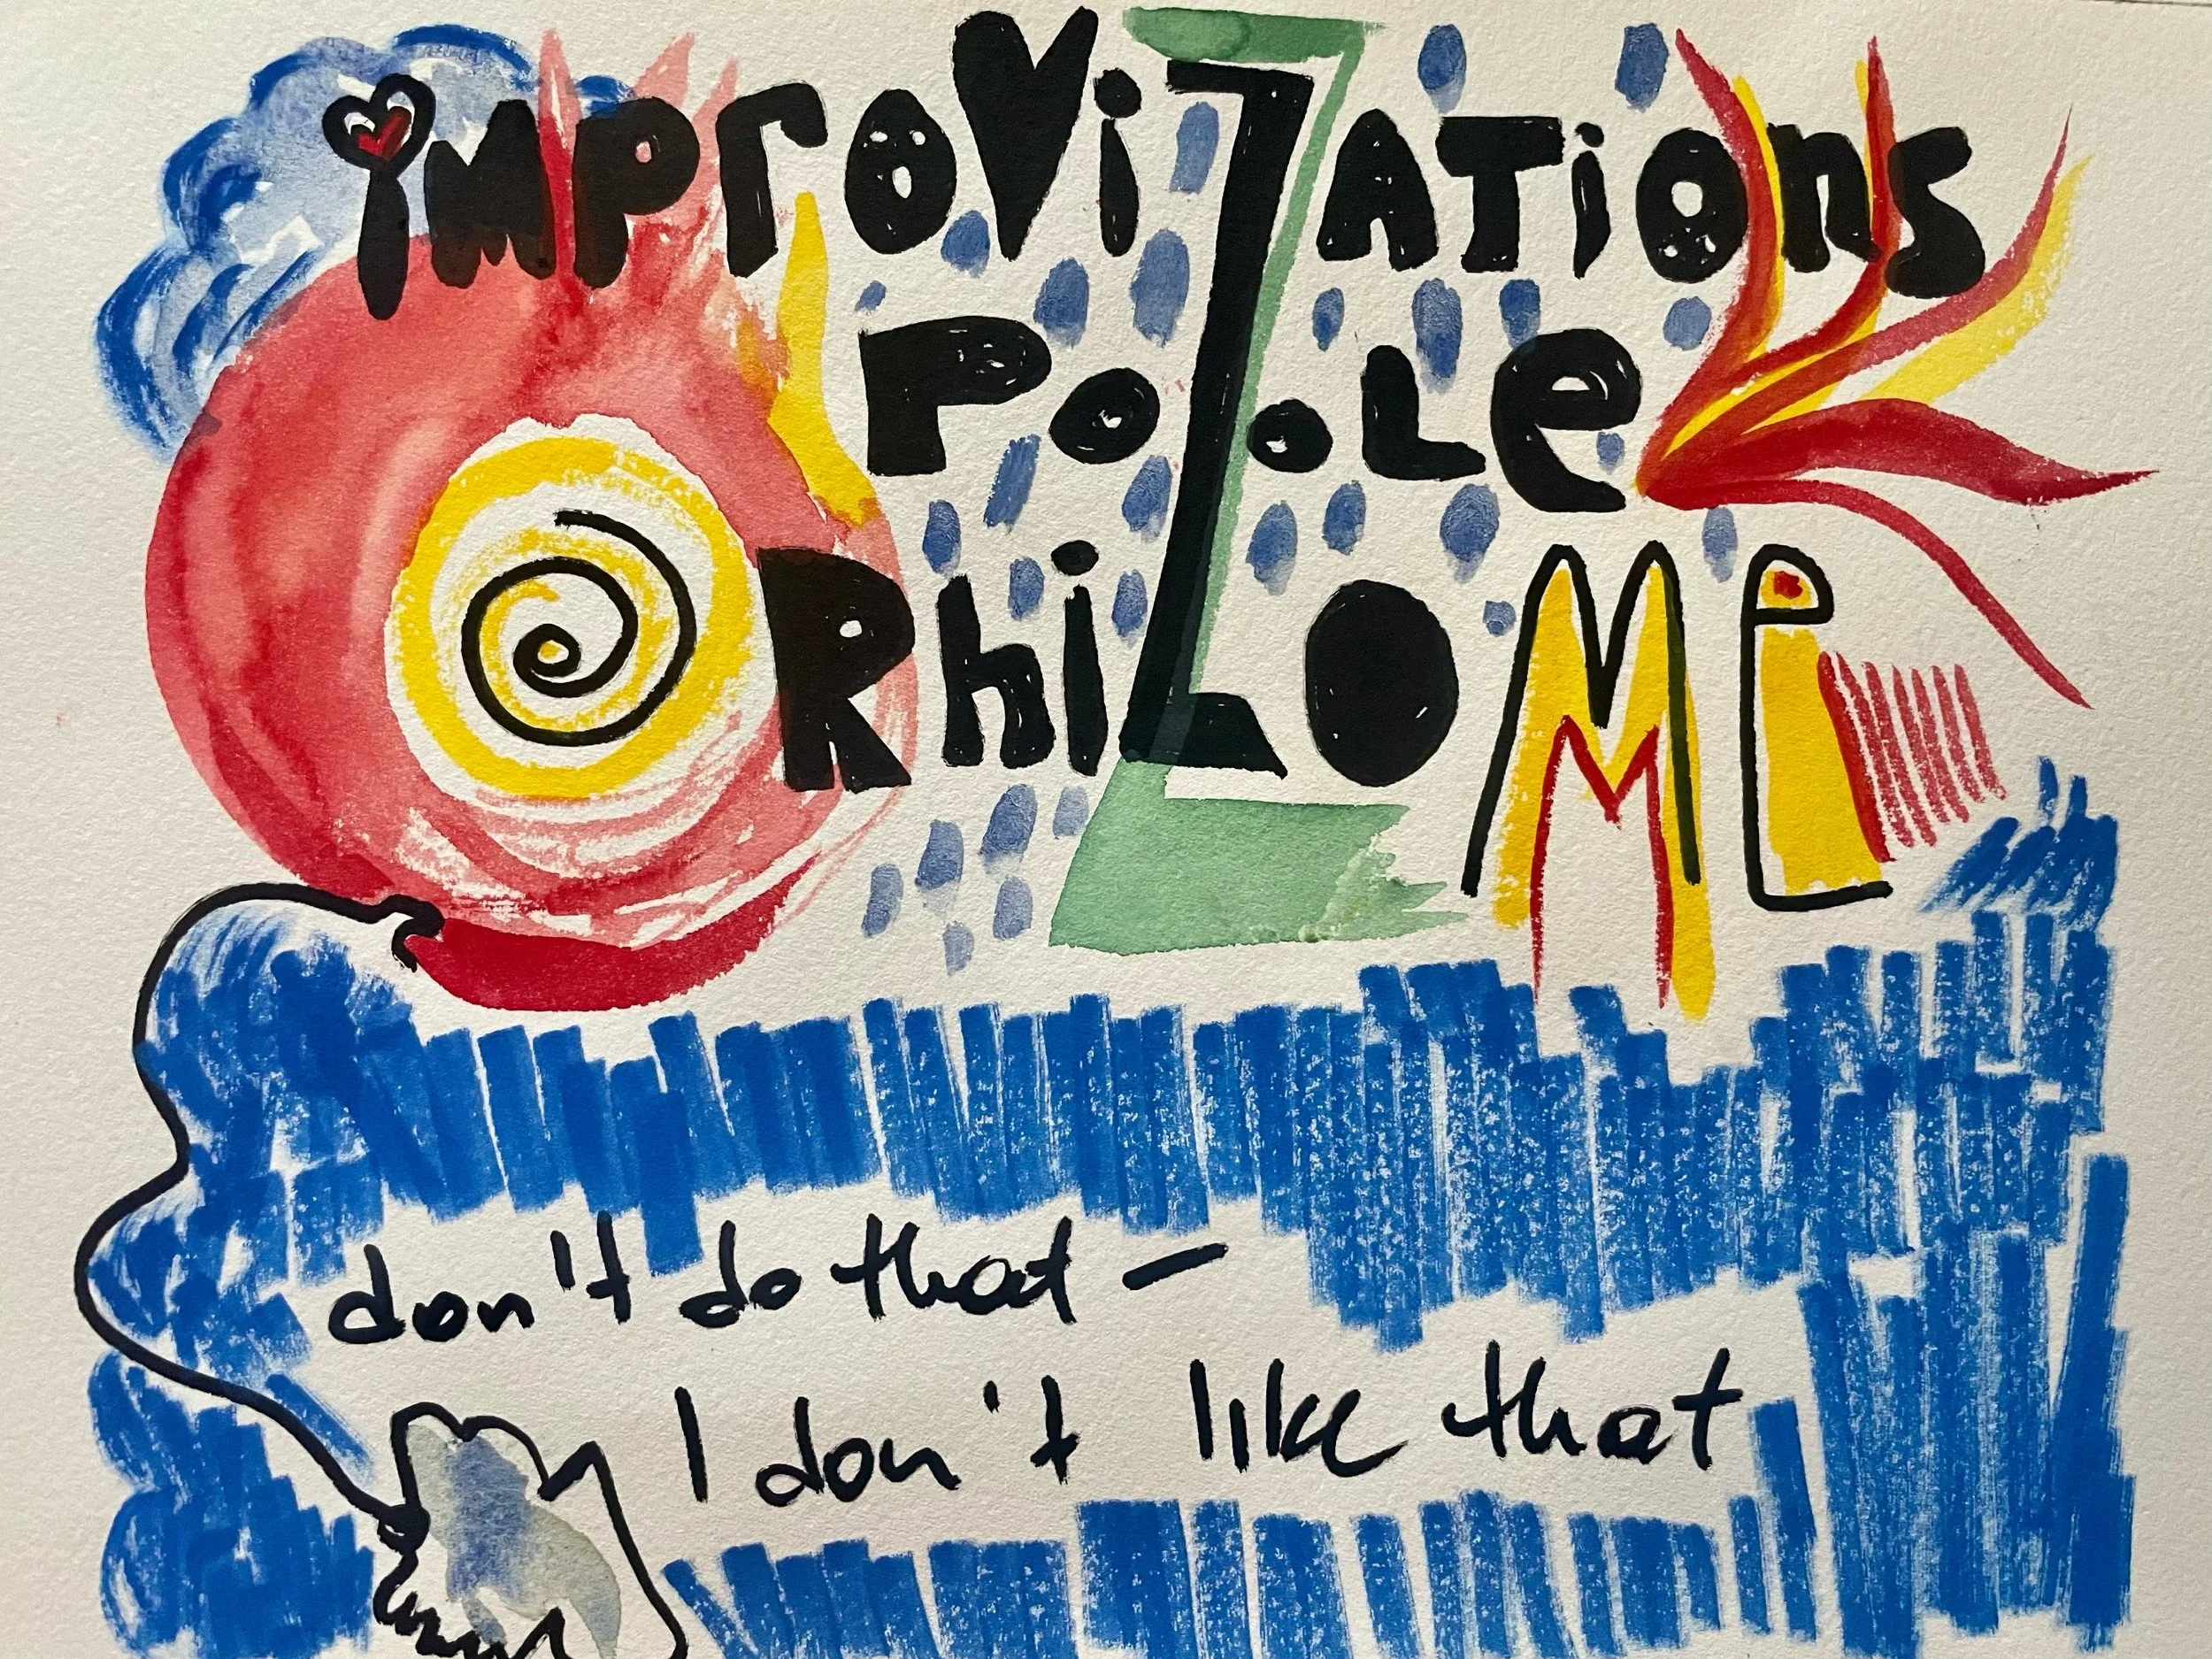 imProViZATions
PoZoLe
RhiZOMe
don't do that –
I don't like that